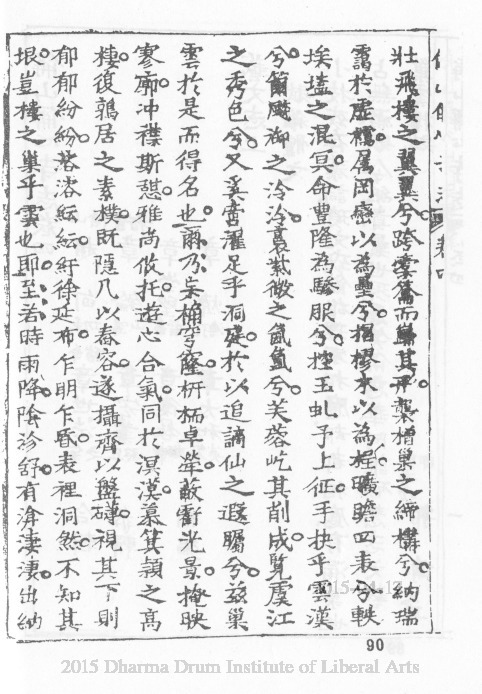 壯飛樓之翼翼兮跨雲
而
其平襲橧巢之締構兮納瑞
靄於虛櫺屬岡巒以為壘兮摺樛木以為桯曠瞻四表兮軼
埃壒之混冥命豐隆為驂服兮控玉虬予上征手抉乎雲漢
兮籋颷御之泠泠裛紫微之氤氳兮芙蓉屹其削成覽虞江
之秀色兮又奚啻濯足乎洞
於以追謫仙之遐矚兮茲巢
雲於是而得名也爾乃
桷穹窿枅栭卓犖蔽虧光景掩映
寥廓冲襟斯憇雅尚攸托遊心合氣同於溟漠慕箕潁之高
棲復鶉居之素樸既隱几以春容遂攝齊以盤礴視其下則
郁郁紛紛濛濛紜紜紆徐延布乍明乍昏表裡洞然不知其
垠豈樓之巢乎雲也耶至若時雨降陰沴舒有渰淒淒出納
90
2015 Dharma Drum Institute of Liberal Arts